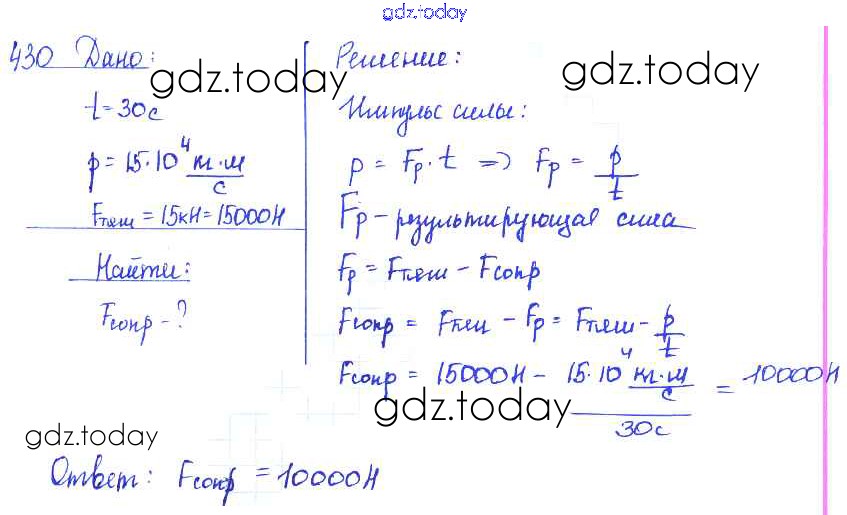 gdz.today
430 Дано:
t = 30с
p = 15·10⁴ кг·м/с
Fтяги = 15кН = 15000Н
Найти:
Fсопр - ?
Решение:
Импульс силы:
p = Fр·t => Fр = p/t
Fр - результирующая сила
Fр = Fтяги - Fсопр
Fсопр = Fтяги - Fр = Fтяги - p/t
Fсопр = 15000Н - 15·10⁴ кг·м/с / 30с = 10000Н
Ответ: Fсопр = 10000Н
gdz.today
gdz.today
gdz.today
gdz.today